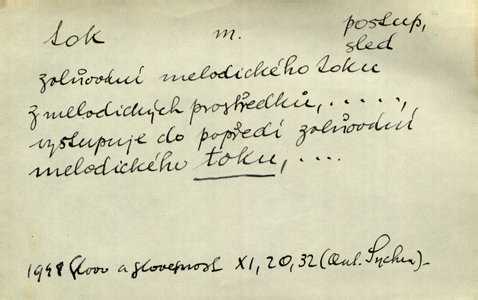 tok m. postup,
sled
zdůvodní melodického toku
z melodických prostředků, . . . . . ,
vystupuje do popředí zdůvodní
melodického toku, . . . .
1948 Slovo a slovesnost XI, 20, 32 (Ant. Sychra).